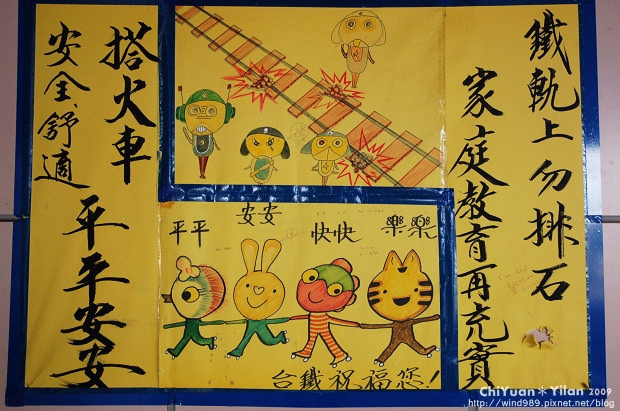 鐵軌上勿排石
家庭教育再充實
搭火車
安全、舒適
平平安安
平平
安安
快快
樂樂
台鐵祝福您!
ChiYuan＊Yilan 2009
http://wind989.pixnet.net/blog